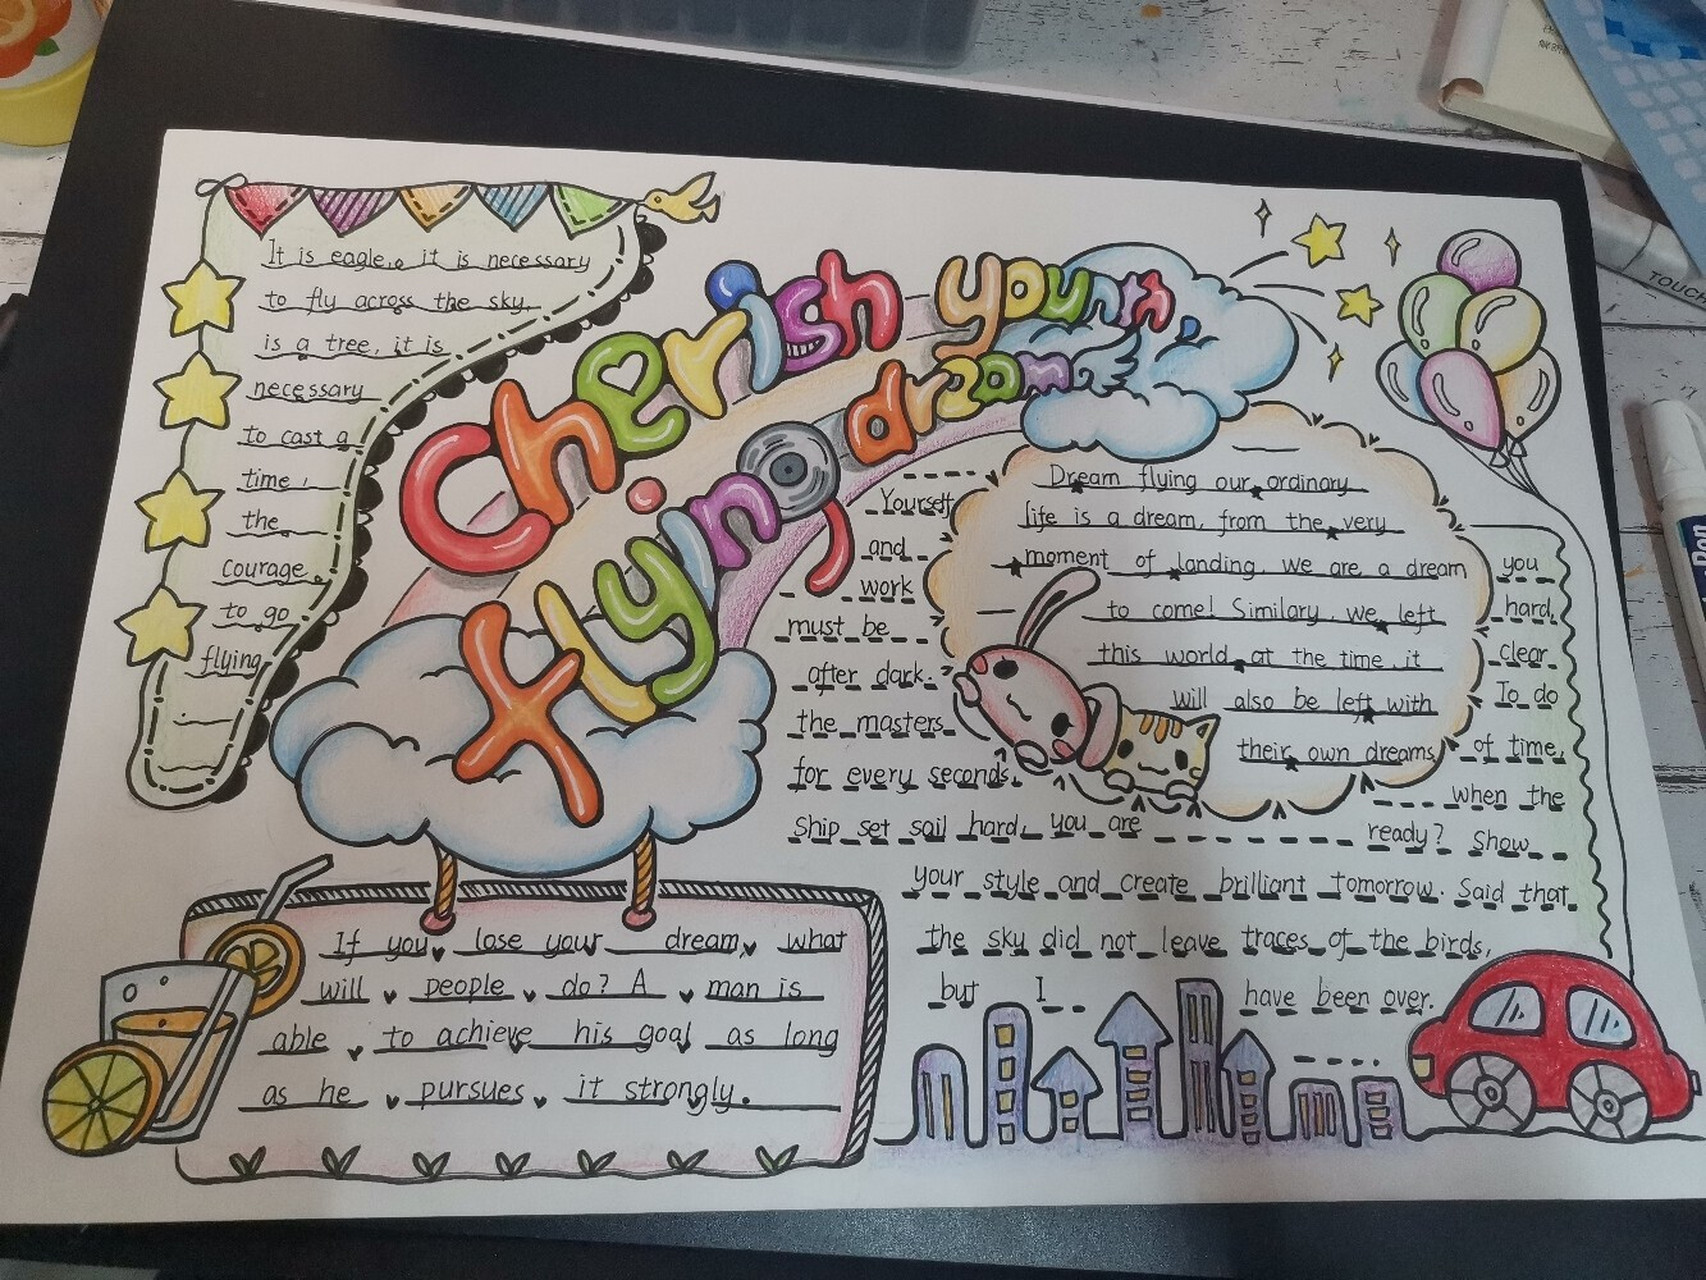 It is eagle, it is necessary
to fly across the sky.
is a tree, it is
necessary
to cast a
time,
the
courage
to go
flying
Cherish youth,
flying dream
Dream flying our ordinary
life is a dream, from the very
moment of landing, we are a dream
to come! Similary, we left
this world at the time, it
will also be left with
their own dreams
Yourself you
and hard,
work clear
must be To do
after dark. of time,
the masters when the
for every seconds.
Ship set sail hard, you are ready? Show
your style and create brilliant tomorrow. Said that
the sky did not leave traces of the birds,
but I have been over.
If you lose your dream, what
will people do? A man is
able to achieve his goal as long
as he pursues it strongly.
TOUCH